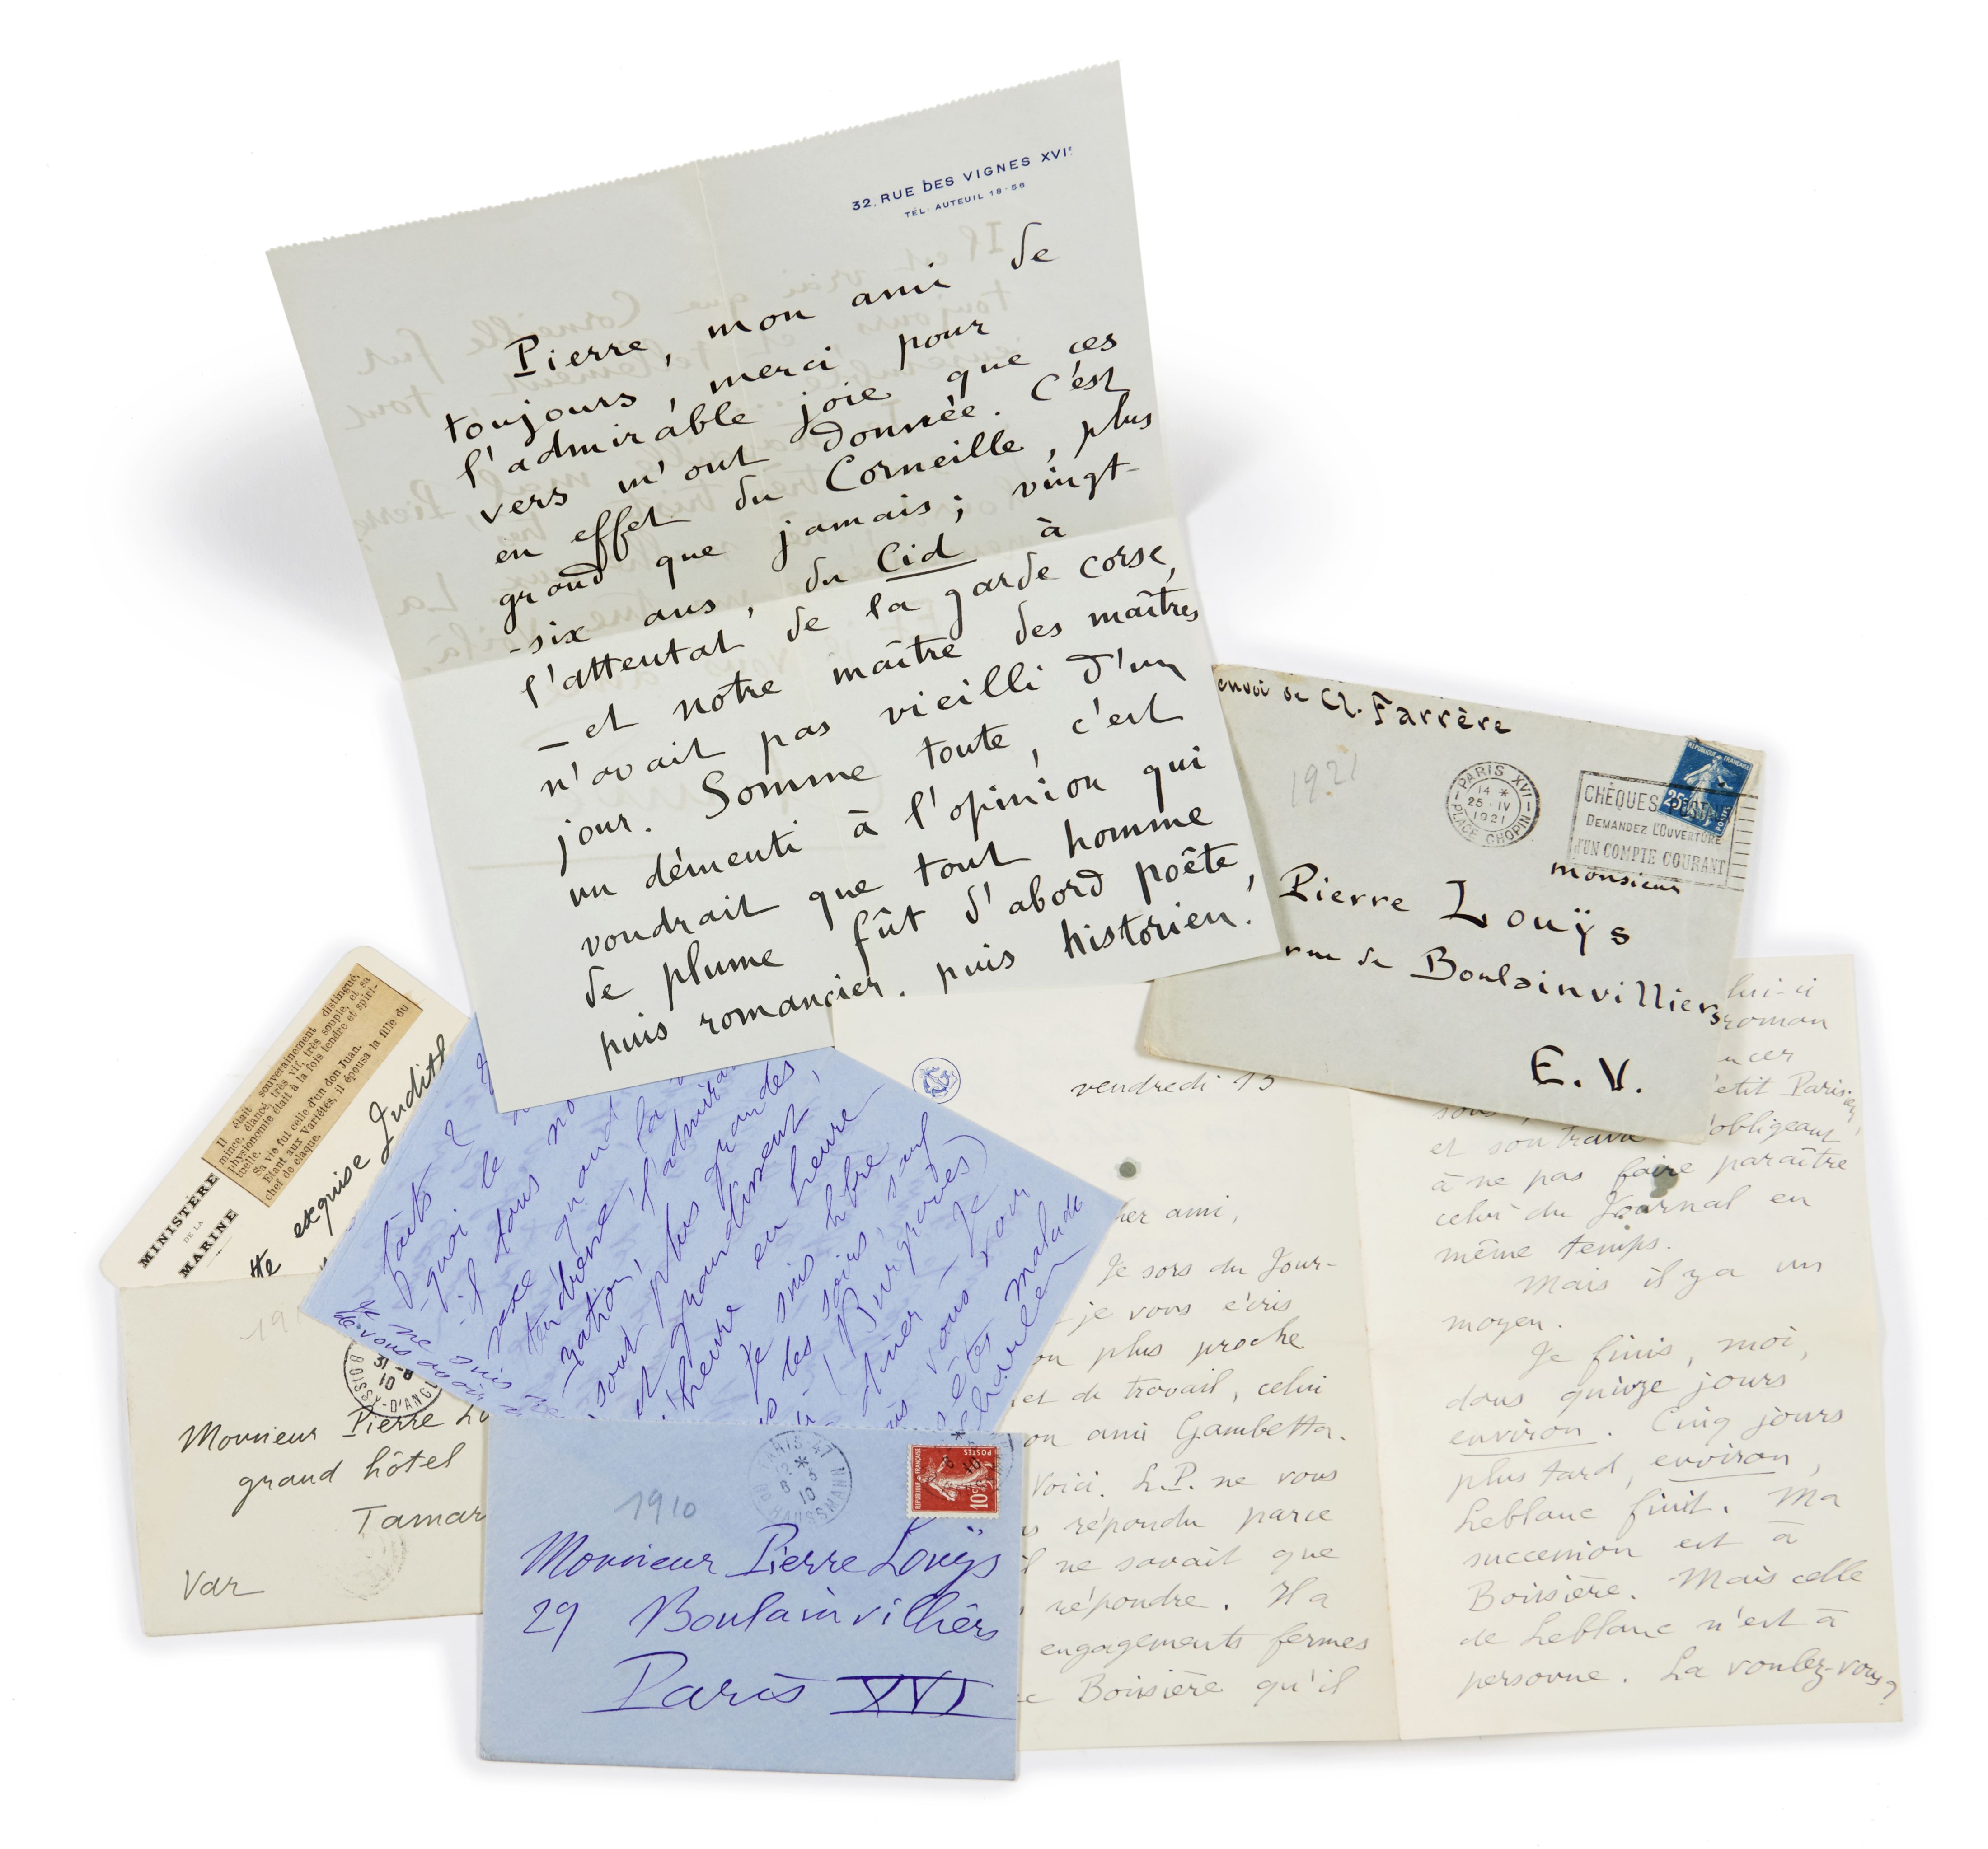 32. RUE DES VIGNES XVIe
TÉL: AUTEUIL 18-56
Pierre, mon ami de
toujours, merci pour
l'admirable joie que ces
vers m'ont donnée. C'est
en effet du Corneille, plus
grand que jamais; vingt-
-six ans, du Cid à
l'attentat de la garde corse,
— et notre maître des maîtres
n'avait pas vieilli d'un
jour. Somme toute, c'est
un démenti à l'opinion qui
voudrait que tout homme
de plume fût d'abord poête,
puis romancier, puis historien.
envoi de Cl. Farrère
1921
PARIS XVI
14 *
25 · IV
1921
PLACE CHOPIN
CHÈQUES POSTAUX
DEMANDEZ L'OUVERTURE
D'UN COMPTE COURANT
RÉPUBLIQUE FRANÇAISE
25c
POSTES
monsieur
Pierre Louÿs
rue de Boulainvilliers
E.V.
Il était souverainement distingué,
mince, élancé, très vif, très souple, et sa
physionomie était à la fois tendre et spiri-
tuelle.
Sa vie fut celle d'un don Juan.
Etant aux Variétés, il épousa la fille du
chef de claque.
MINISTÈRE
DE LA
MARINE
exquise Judith
tte
31-8
10
Monsieur Pierre Lo
grand hôtel
Tamar
Var
faits ?
quoi le
-il tous no
sexe quand
tendresse, l'admira
-zation, la
sont plus grandes,
et grandissent,
d'heure en heure
Je suis libre
les soirs, sauf
(Burgraves)
dîner – Je
vous voir
êtes malade
Je ne suis
de vous avoir
1910
PARIS 47
* 6
8
10
BD HAUSSMANN
RÉPUBLIQUE FRANÇAISE
10c
POSTES
Monsieur Pierre Louÿs
29 Boulainvilliers
Paris XVI
vendredi 15
her ami,
Je sors du Jour-
je vous écris
on plus proche
et de travail, celui
on ami Gambetta.
Voici. L.P. ne vous
répondu parce
il ne savait que
répondre. Il a
engagements fermes
Boissière qu'il
lui-ci
roman
ncer
etit Parisien,
et son travail l'obligeant
à ne pas faire paraître
celui du Journal en
même temps.
Mais il y a un
moyen.
Je finis, moi,
dans quinze jours
environ. Cinq jours
plus tard, environ,
Leblanc finit. Ma
succession est à
Boissière. Mais celle
de Leblanc n'est à
personne. La voulez-vous?